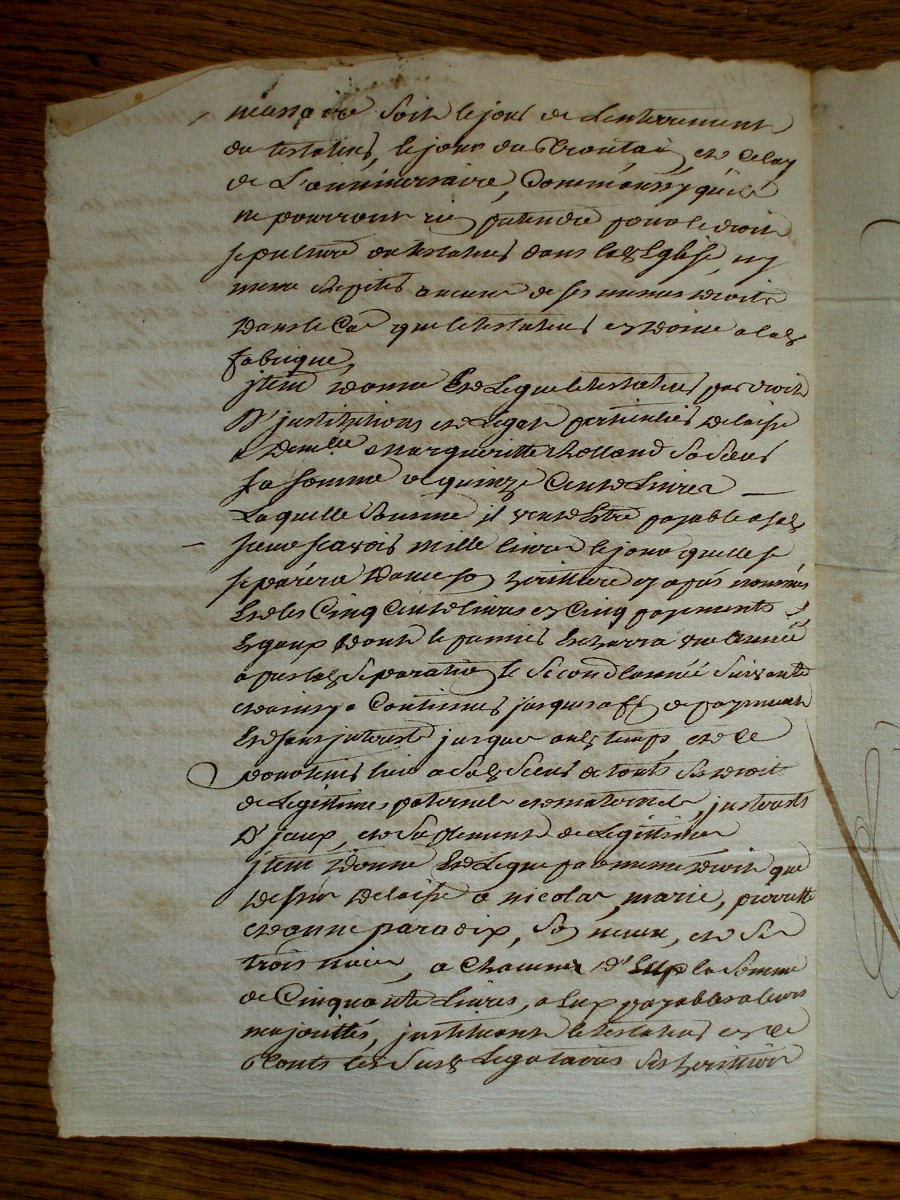 necessaire soit le jour de Lenterrement
du testateur, le jour du Trentain, et celuy
de L'anniversaire, Comm'aussy qu'ils
ne pourront rien pretendre pour le droit
sepulture du testateur dans lad Eglise, ny
meme repeter aucun de ses memes droits
dans le Cas que le testateur en donne a lad
fabrique,
jtem donne Et Legue le testateur par droit
D'justitution et Legat particulier delaisse
a Demlle Margueritte Rolland sa soeur
la somme de quinze Cents Livres
Laquelle somme il veut Estre payable a sad
soeur scavoir mille livres le jour quelle se
separera d'avec son heritiere cy apres nommée
Et les Cinq Cents livres en Cinq payements
Egaux dont le premier Echerra une année
apres lad separation le second l'année suivante
et ainsy a Continuer jusques a fin de payement
Et sans jnterest jusques aud temps, et ce
pour tenir lieu a sad soeur de touts ses droits
de Legitime paternels et maternels, jnterests
D'jceux, et suplement de Legittime
jtem donne Et Legue par meme droit que
dessus delaisse a nicolas, marie, pierrette
et anne paradix, son neveu, et ses
trois nieces, a Chacun D'Eux la somme
de Cinquante Livres, a Eux payables a leurs
majorittés, justituant le testateur en ce
touts les susd Legataires ses heritiers